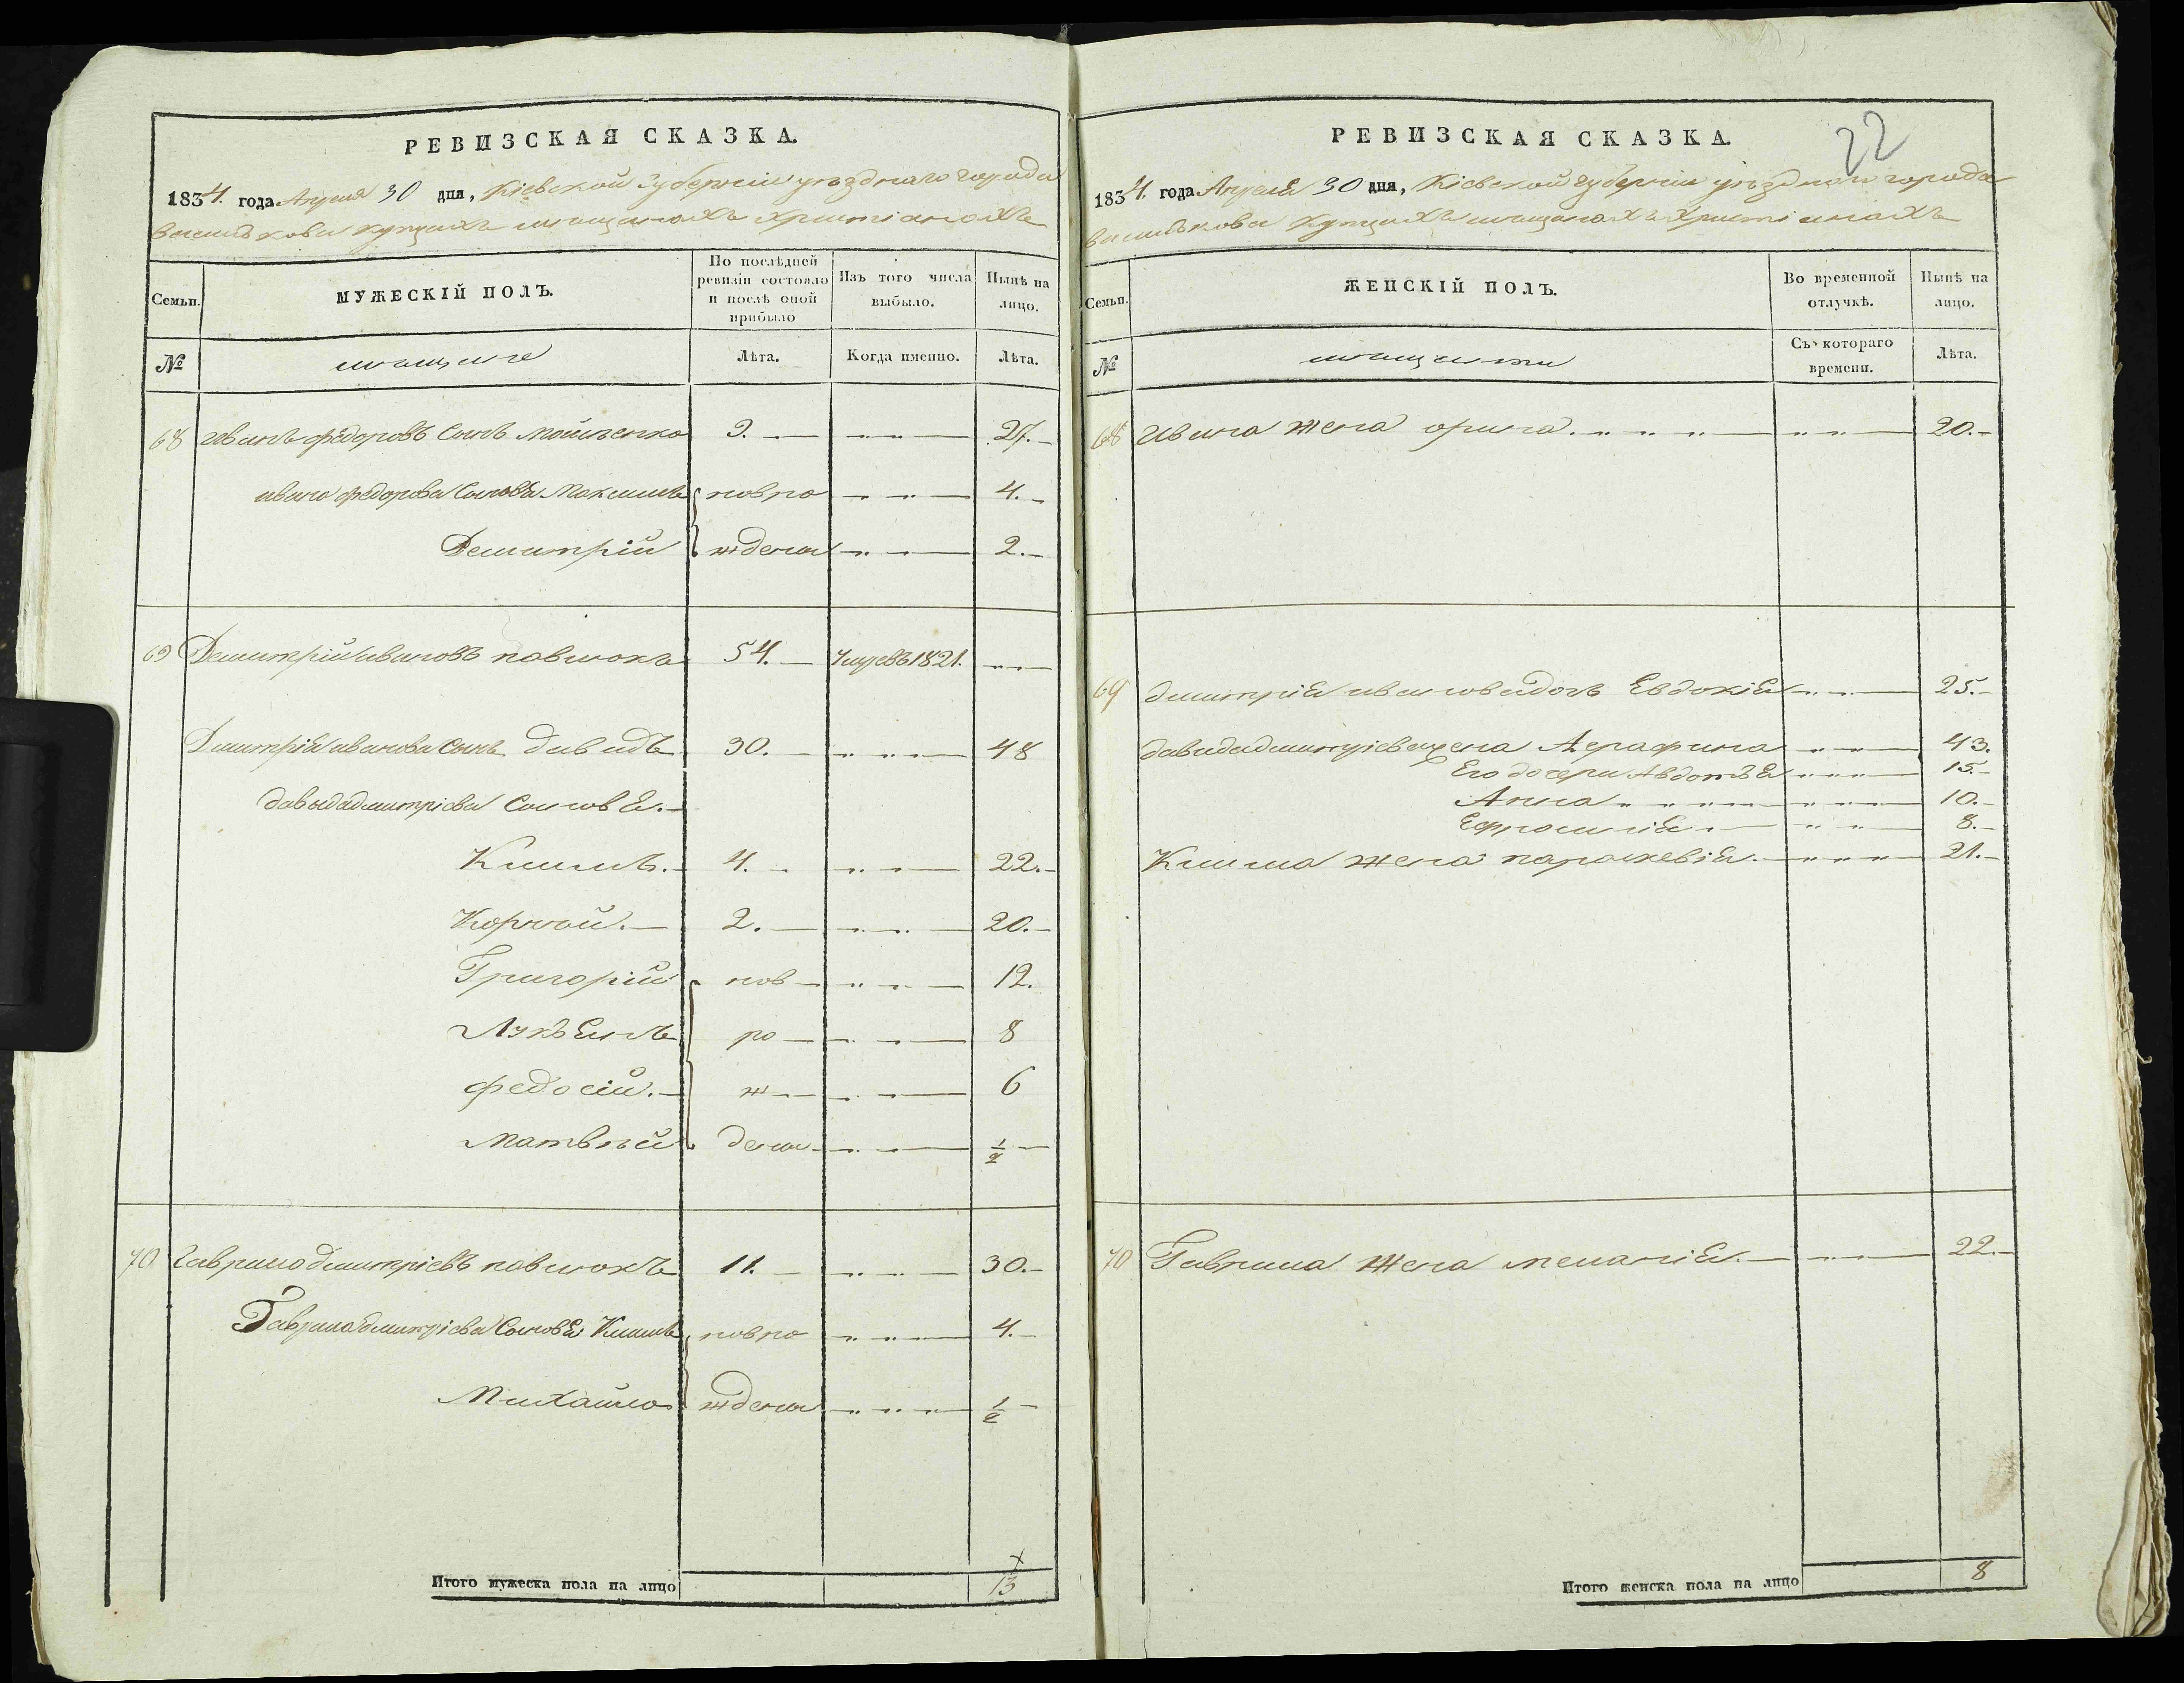 РЕВИЗСКАЯ СКАЗКА.
1834. года Апреля 30 дня, Кіевской Губерніи уѣзднаго города
Василькова купцахъ мѣщанахъ Христіанахъ
Семьи.
МУЖЕСКІЙ ПОЛЪ.
По послѣдней ревизіи состояло и послѣ оной прибыло
Изъ того числа выбыло.
Нынѣ на лицо.
№
мещане
Лѣта.
Когда именно.
Лѣта.
68 Иванъ Федоровъ Сынъ Мойсенко 9. 27.
Ивана Федорова Сыновья Максимъ новро 4.
Демитрій ждены 2.
69 Демитрій Ивановъ Павлюкъ 54. Умревъ 1821.
Дмитрія Иванова Сынъ Давидъ 30. 48
Давыда дмитріева Сыновья.
Климъ. 4. 22.
Корней. 2. 20.
Григорій нов 12.
Лукъянъ ро 8
Федосій. ж 6
Матвѣй дены 1/2
70 Гаврило Дмитріевъ Павлюкъ 11. 30.
Гаврила дмитріева Сыновья Климъ новро 4.
Михайло ждены 1/2
Итого мужеска пола на лицо 13
22
РЕВИЗСКАЯ СКАЗКА.
1834. года Апреля 30 дня, Кіевской губерніи уѣзднаго города
Василькова Купцахъ мѣщанахъ Христіанахъ
Семьи.
ЖЕНСКІЙ ПОЛЪ.
Во временной отлучкѣ.
Нынѣ на лицо.
№
Съ котораго времени.
Лѣта.
68 Ивана жена орина 20.
69 дмитрія иванова дочь Евдокія 25.
давида дмитріева жена Аграфина 43.
Его дочери Авдотья 15.
Анна 10.
Ефросинія 8.
Клима жена параскевія 21.
70 Гаврила жена меланія 22.
Итого женска пола на лицо 8